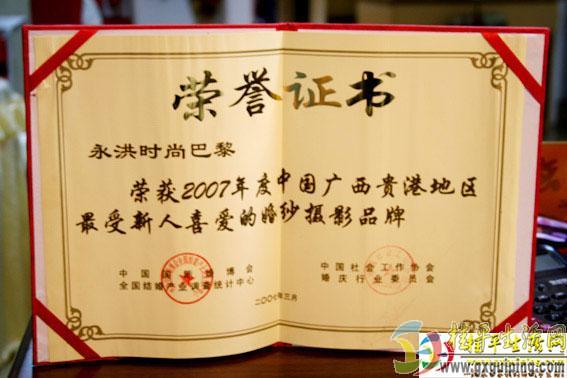 荣誉证书
永洪时尚巴黎
荣获2007年度中国广西贵港地区
最受新人喜爱的婚纱摄影品牌
全国结婚产业调查统计中心
中国社会工作协会
婚庆行业委员会
二00七年三月
桂平生活网
www.gxguiping.com